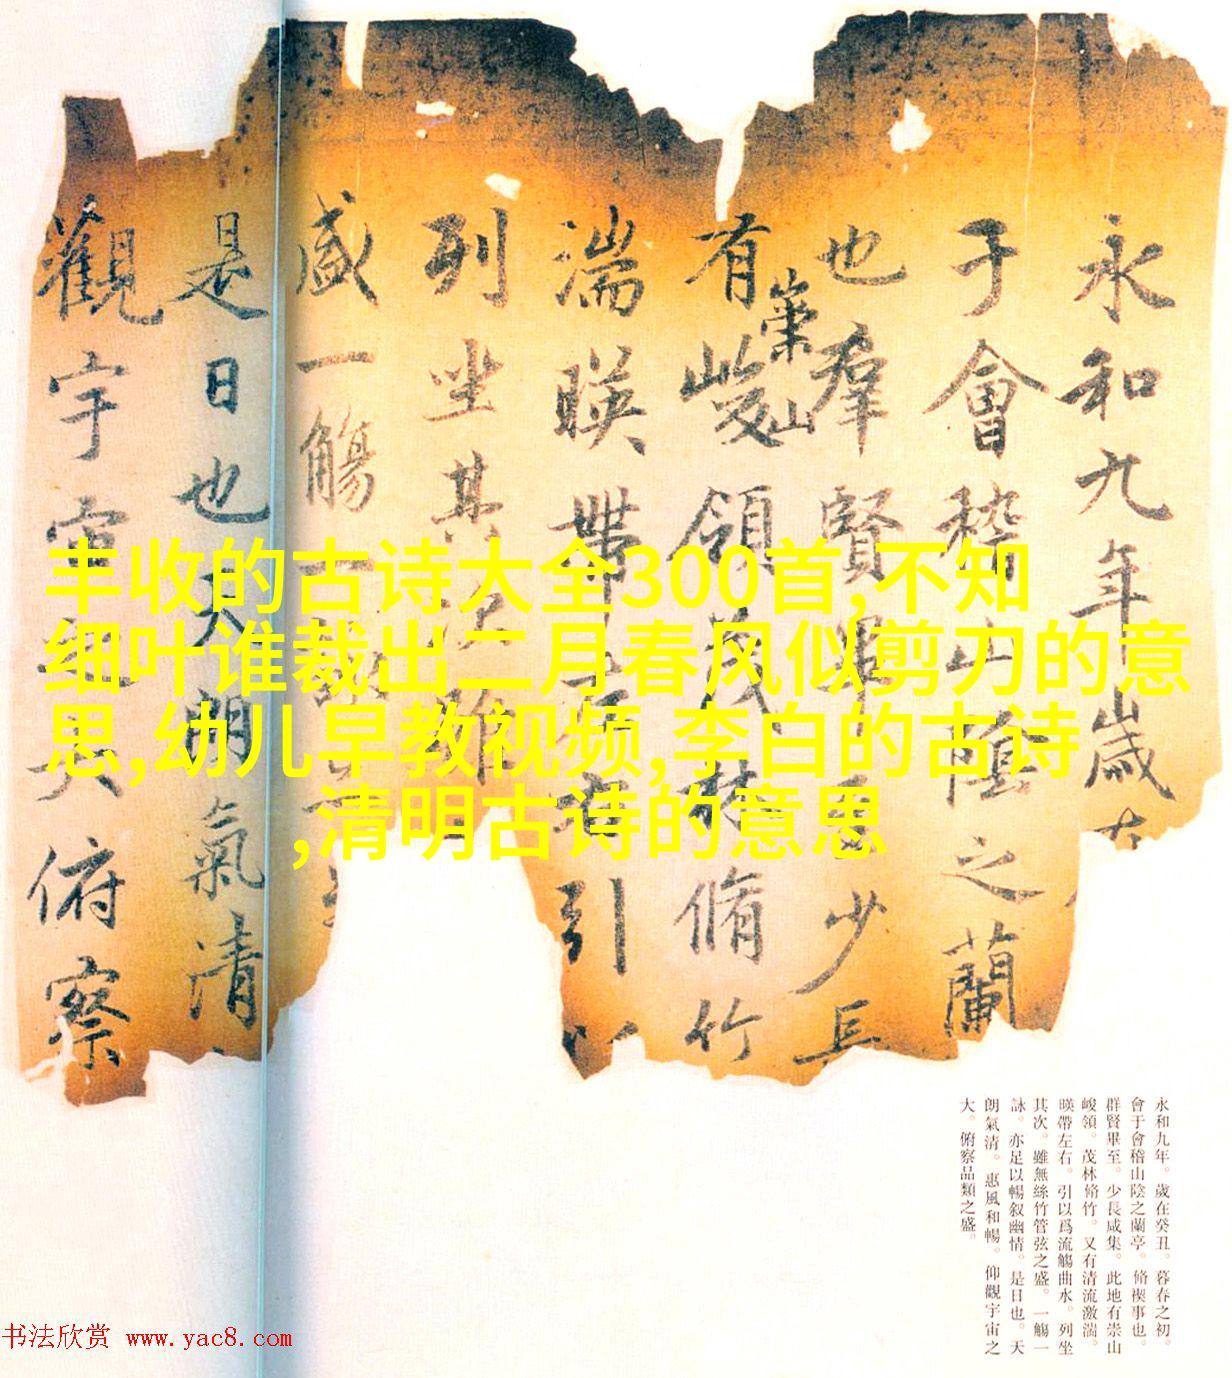 永和九年歲在
于會稽山陰之蘭
也羣賢畢至少長
有崇峻山領茂林脩竹
湍暎帶左右引以
列坐其次雖
盛一觴一詠
是日也天朗氣清
觀宇宙之大俯察
丰收的古诗大全300首,不知
细叶谁裁出二月春风似剪刀的意
思,幼儿早教视频,李白的古诗
,清明古诗的意思
永和九年。歲在癸丑。暮春之初。
會于會稽山陰之蘭亭。脩禊事也。
群賢畢至。少長咸集。此地有崇山
峻領。茂林脩竹。又有清流激湍。
暎帶左右。引以爲流觴曲水。列坐
其次。雖無絲竹管弦之盛。一觴一
詠。亦足以暢叙幽情。是日也。天
朗氣清。惠風和暢。仰觀宇宙之
大。俯察品類之盛。
书法欣赏 www.yac8.com